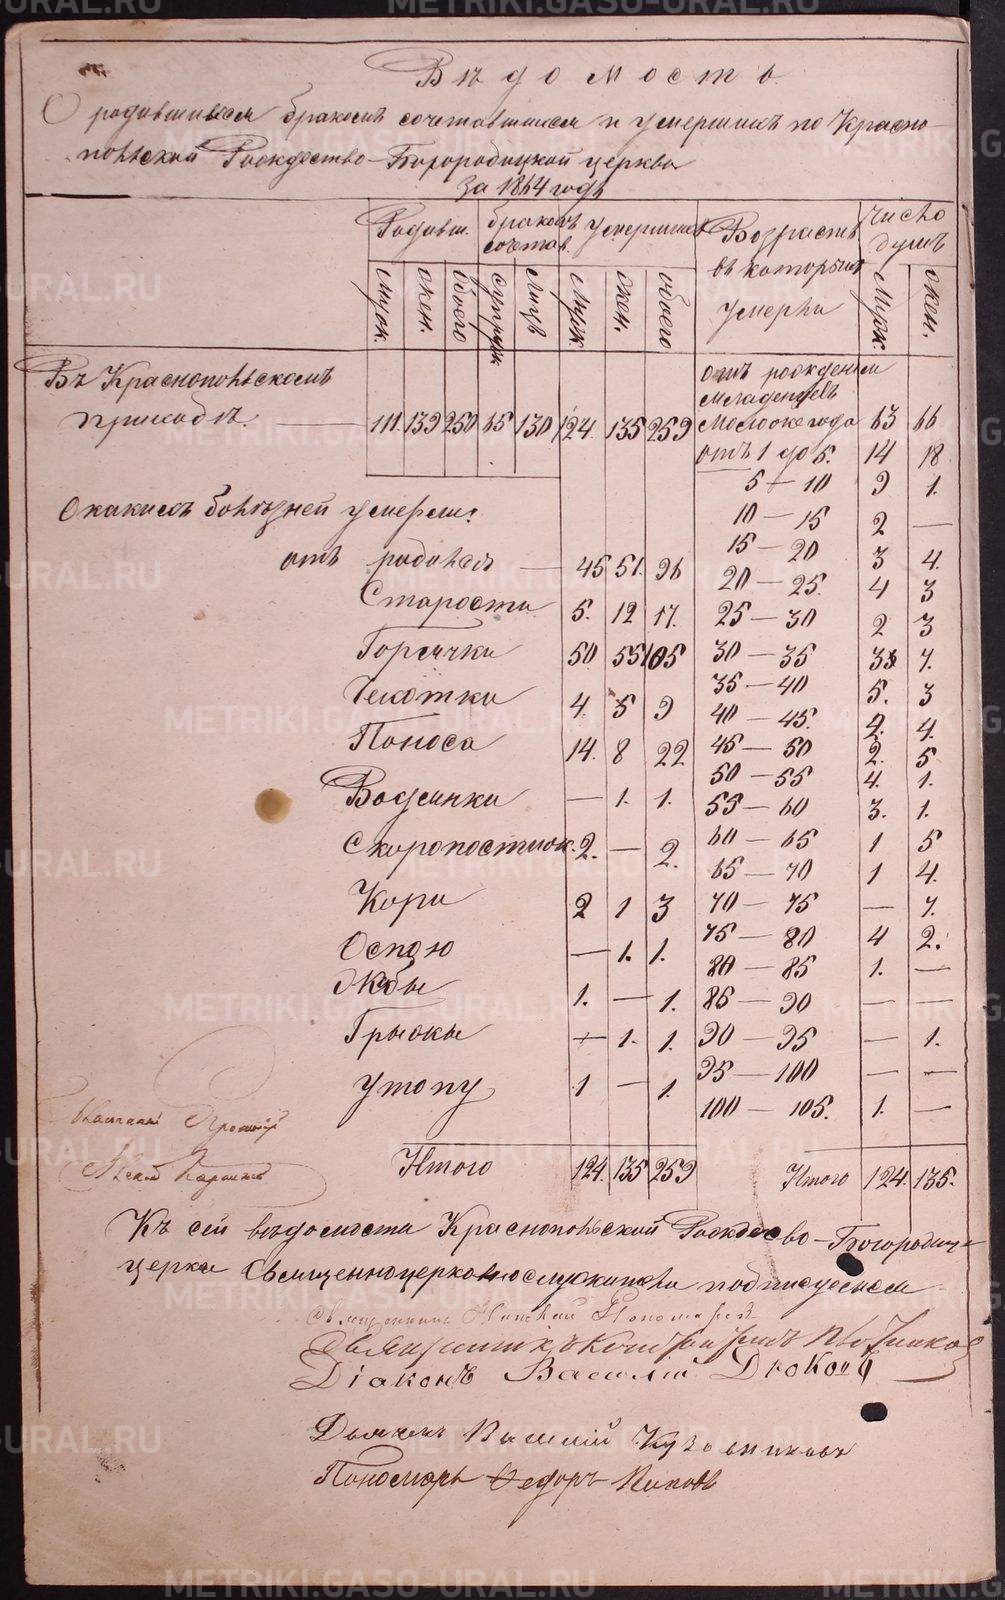 Вѣдомость
О родившихся бракомъ сочетавшихся и умершихъ по Красно
польской Рождество-Богородицкой церкви
За 1864 годъ
Родивш. бракомъ сочетав. умершихъ Возрастъ въ которомъ умерли Число душъ
Муж. жен. обоего супруж. лицъ Муж. жен. обоего Муж. жен.
Въ Краснопольскомъ
приходѣ. 111. 139 250 65 130 124. 135 259
отъ рожденія младенцевъ
моложе года 63 66
отъ 1 до 5. 14 18
5 — 10 9 1.
10 — 15 2 —
15 — 20 3 4.
20 — 25. 4 3
25 — 30 2 3
30 — 35 3 7.
35 — 40 5. 3
40 — 45. 2. 4.
45 — 50 2. 5
50 — 55 4. 1.
55 — 60 3. 1.
60 — 65 1 5
65 — 70 1 4.
70 — 75 — 7.
75 — 80 4 2.
80 — 85 1. —
85 — 90 — —
90 — 95 — 1.
95 — 100 — —
100 — 105. 1. —
Итого 124. 135.
О какихъ болѣзней умерли:
отъ родимца — 45 51. 96
Старости 5. 12 17.
Горячки 50 55 105
Чахотки 4. 5 9
Поноса 14. 8 22
Водянки — 1. 1.
Скоропостиж. 2. — 2.
Кори 2 1 3
Оспою — 1. 1.
Жабы 1. — 1.
Грыжы — 1. 1.
Утону 1 — 1.
Итого 124. 135 259
Къ сей вѣдомости Краснопольской Рождество-Богородиц
церкви Священноцерковнослужители подписуемся
Священникъ
Священникъ
Діаконъ Василій Дюковъ
Дьячекъ Василій
Пономарь Ѳедоръ Поповъ
METRIKI.GASO-URAL.RU